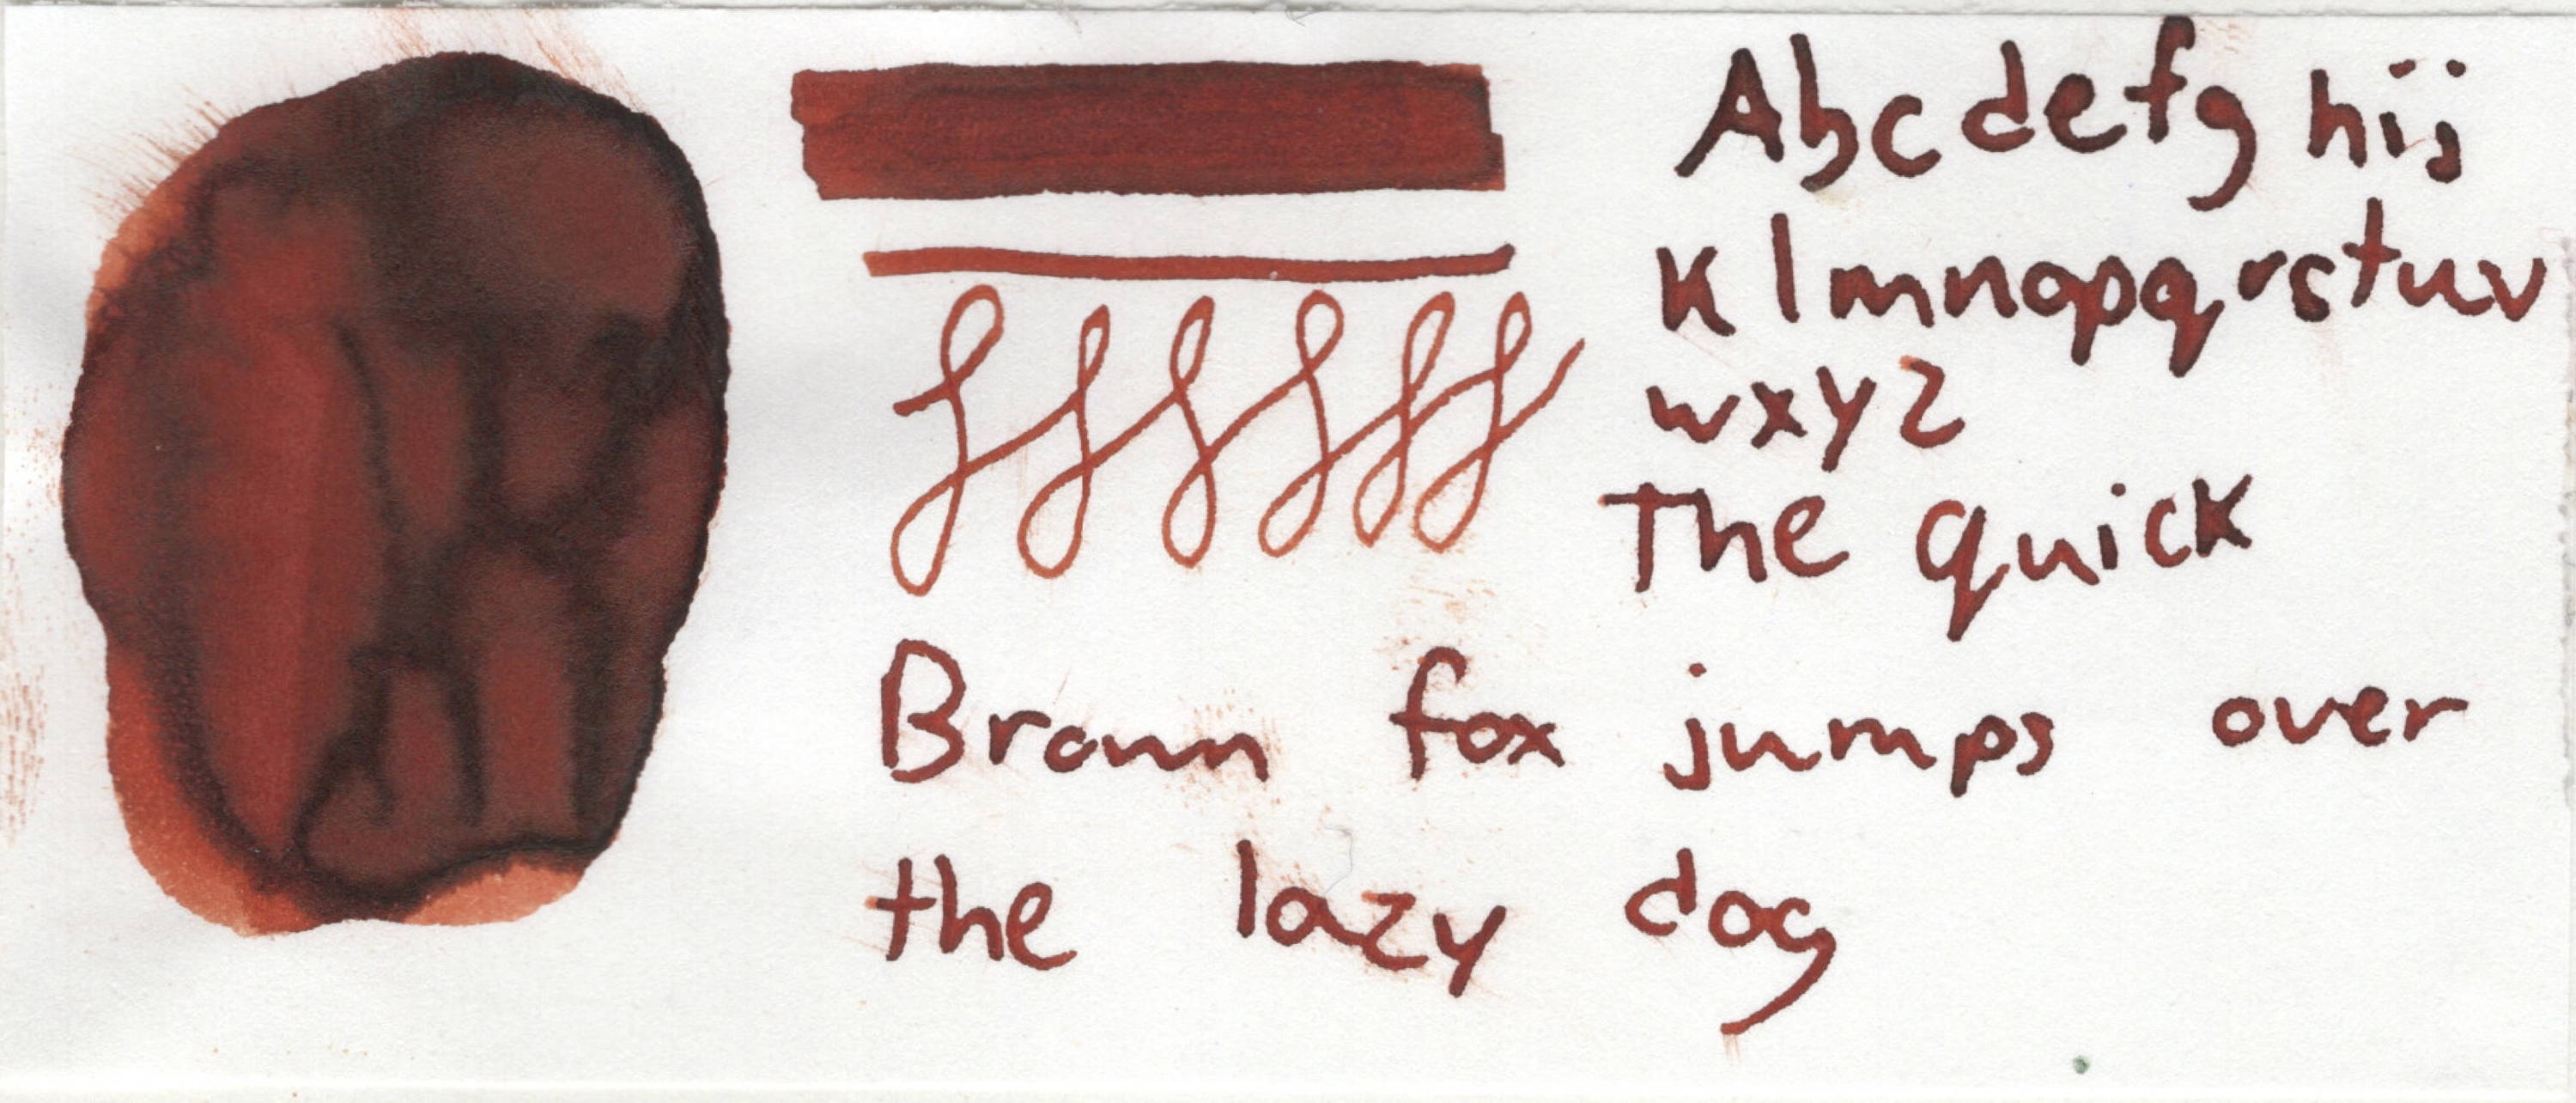 Abcdefg hij
klmnopqrstuv
wxyz
The quick
Brown fox jumps over
the lazy dog